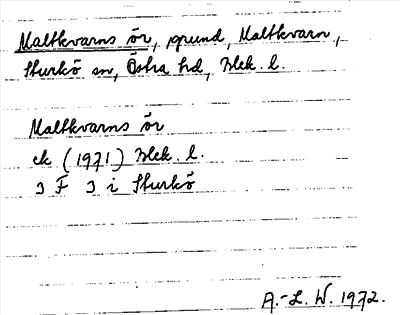 Maltkvarns ör, grund, Maltkvarn,
Sturkö sn, Östra hd, Blek. l.
Maltkvarns ör
ek (1971) Blek. l.
3 F 3 i Sturkö
A.-L. W. 1972.